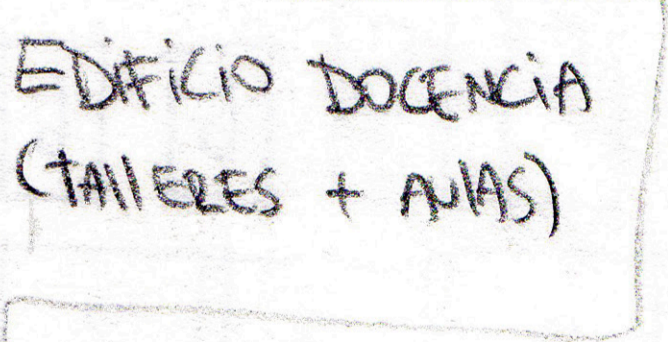 EDIFICIO DOCENCIA
(TALLERES + AULAS)